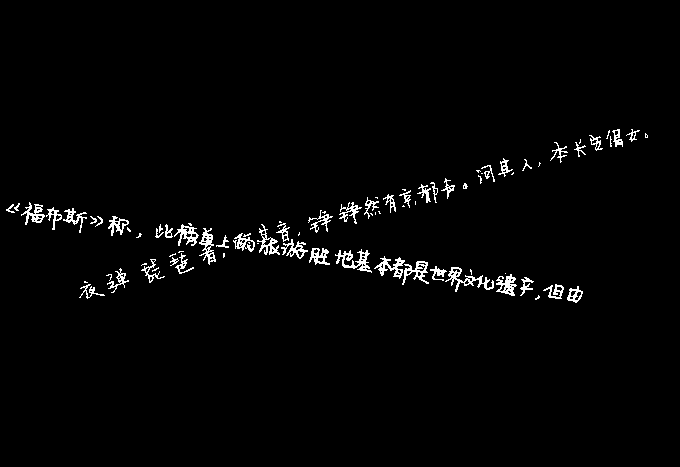 《福布斯》称，此榜单上的旅游胜地基本都是世界文化遗产，但由
夜弹琵琶者，听其音，铮铮然有京都声。问其人，本长安倡女。